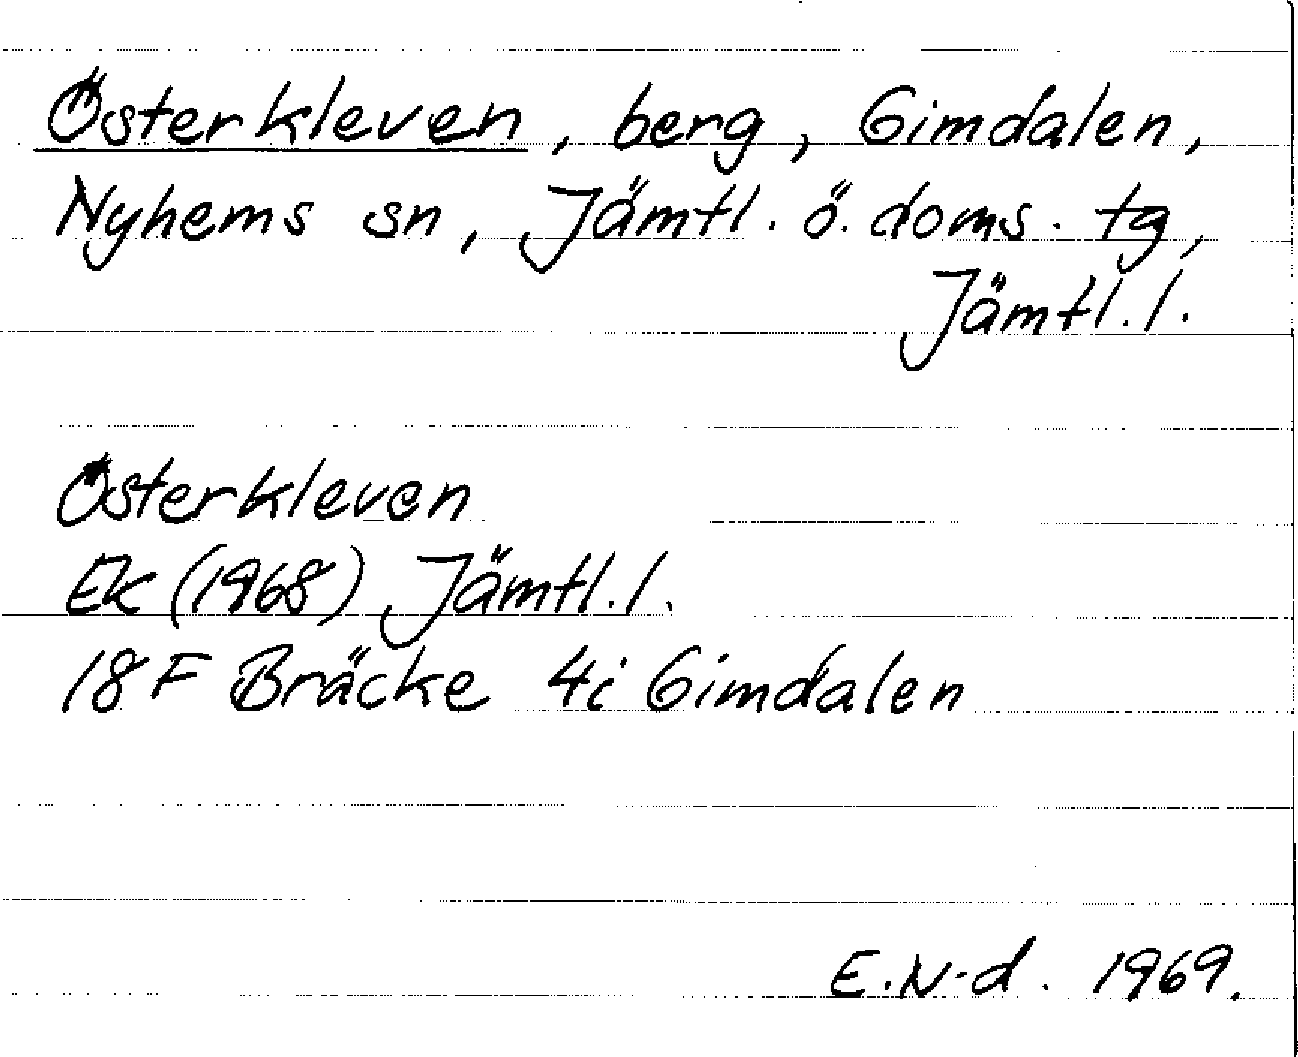 Österkleven, berg, Gimdalen,
Nyhems sn, Jämtl. ö. doms. tg,
Jämtl. l.
Österkleven
Ek (1968) Jämtl. l.
18 F Bräcke 4i Gimdalen
E.N-d. 1969.